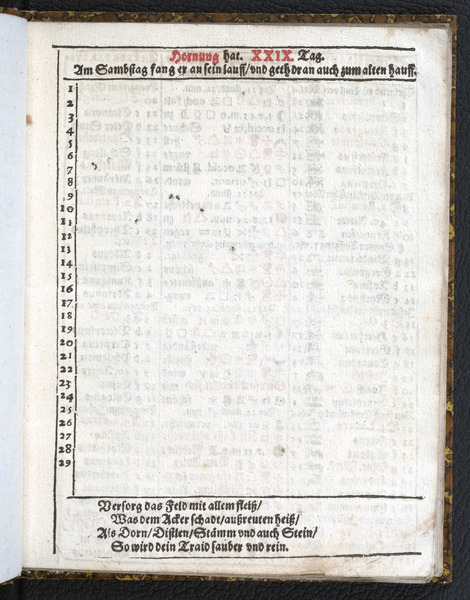 Hornung hat. XXIX Tag.
Am Sambstag fang er an sein lauff/vnd geth dran auch zum alten hauff.
1
2
3
4
5
6
7
8
9
10
11
12
13
14
15
16
17
18
19
20
21
22
23
24
25
26
27
28
29
Versorg das Feld mit allem fleiß/
Was dem Acker schadt/außreuten heiß/
Als Dorn/Distlen/Stämm vnd auch Stein/
So wird dein Traid sauber vnd rein.